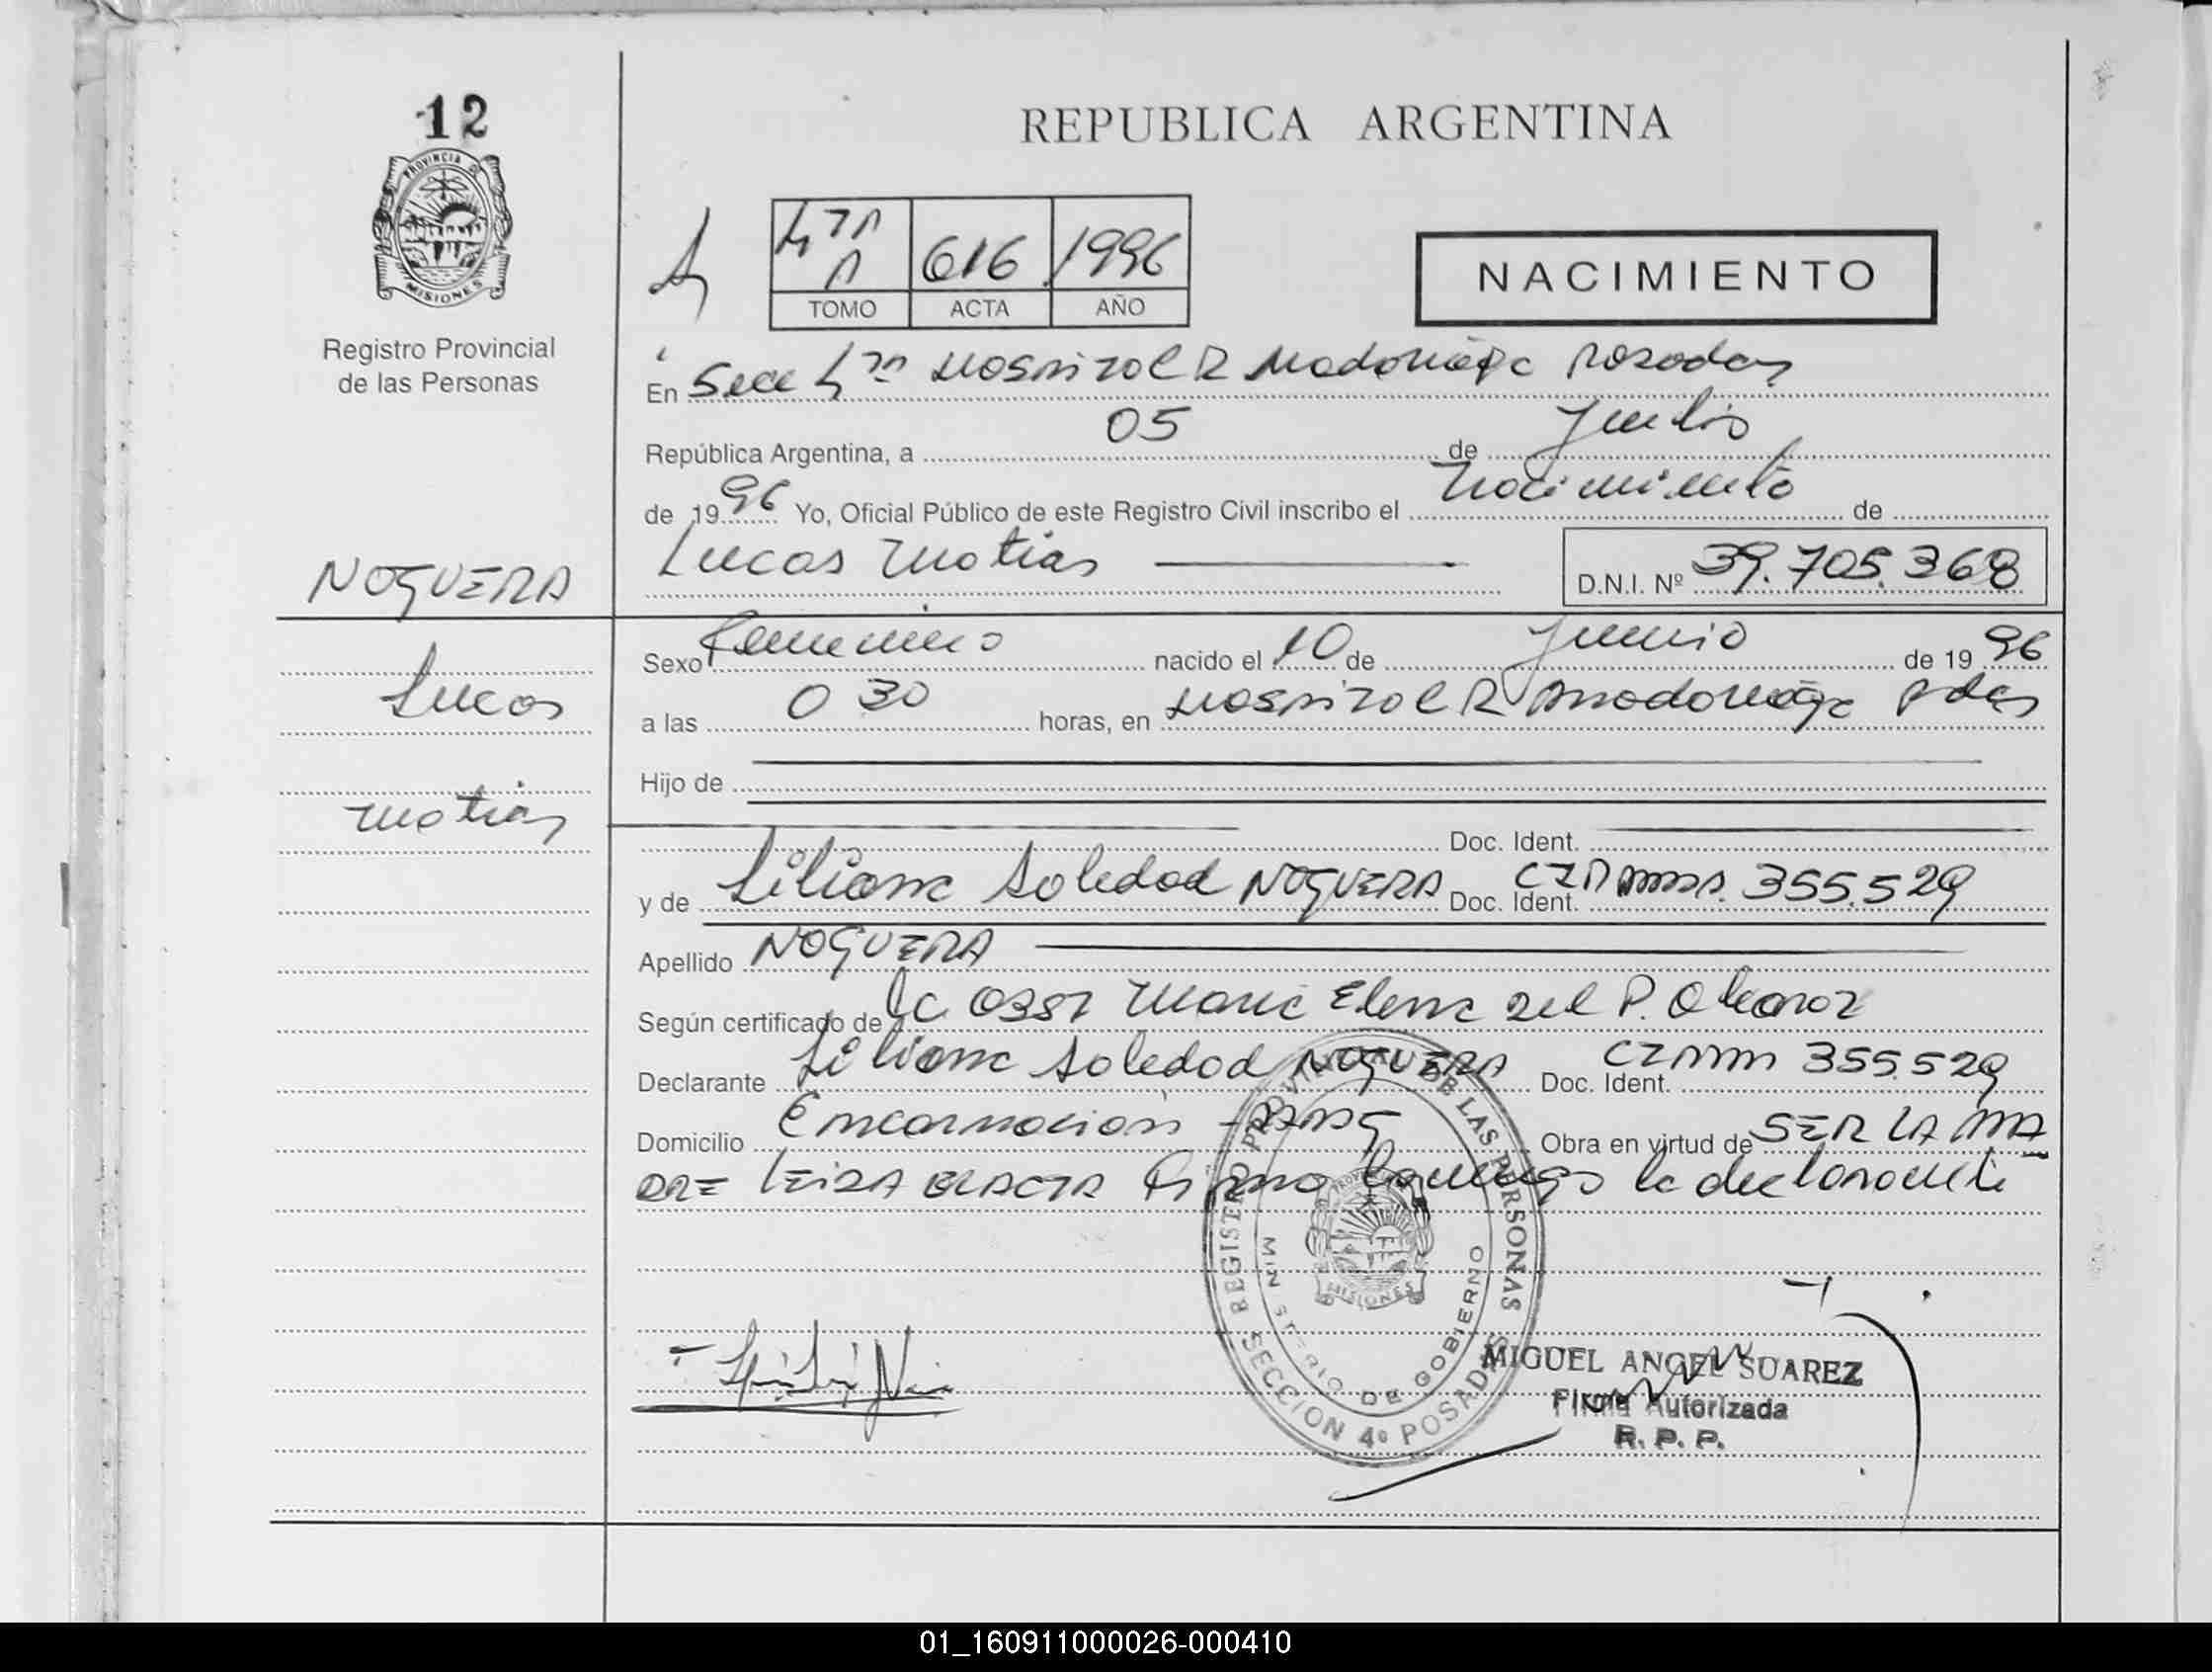 12
PROVINCIA DE
MISIONES
Registro Provincial
de las Personas
REPUBLICA ARGENTINA
4ta A 616 1996
TOMO ACTA AÑO
NACIMIENTO
En Secc 4ta Hospital R Madariaga Posadas
República Argentina, a 05 de Julio
de 1996 Yo, Oficial Público de este Registro Civil inscribo el Nacimiento de
Lucas Matias
D.N.I. Nº 39.705.368
NOGUERA
Lucas
Matias
Sexo Femenino nacido el 10 de Junio de 1996
a las 0 30 horas, en Hospital R Madariaga Pdas
Hijo de
Doc. Ident.
y de Liliana Soledad NOGUERA Doc. Ident. 355.529
Apellido NOGUERA
Según certificado de Maria Elena del P.
Declarante Liliana Soledad NOGUERA Doc. Ident. 355.529
Domicilio Encarnacion Obra en virtud de SER LA MA
DRE LEIDA EL ACTA Firma Conmigo la declarante
REGISTRO PROVINCIAL DE LAS PERSONAS
MINISTERIO DE GOBIERNO
MISIONES
SECCION 4º POSADAS
MIGUEL ANGEL SUAREZ
Firma Autorizada
R. P. P.
01_160911000026-000410